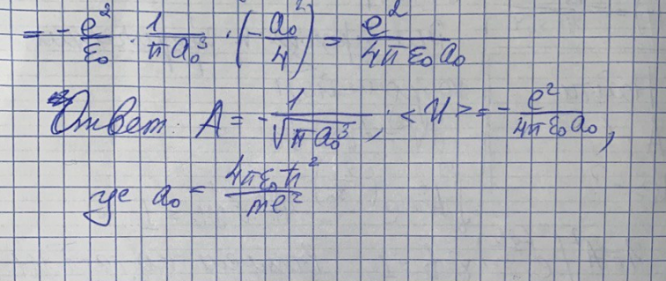 = - e²/ε₀ · 1/πa₀³ · (-a₀²/4) = e²/4πε₀a₀
Ответ: A = - 1/√πa₀³ ; <U> = - e²/4πε₀a₀ ,
где a₀ = 4πε₀ħ²/me²